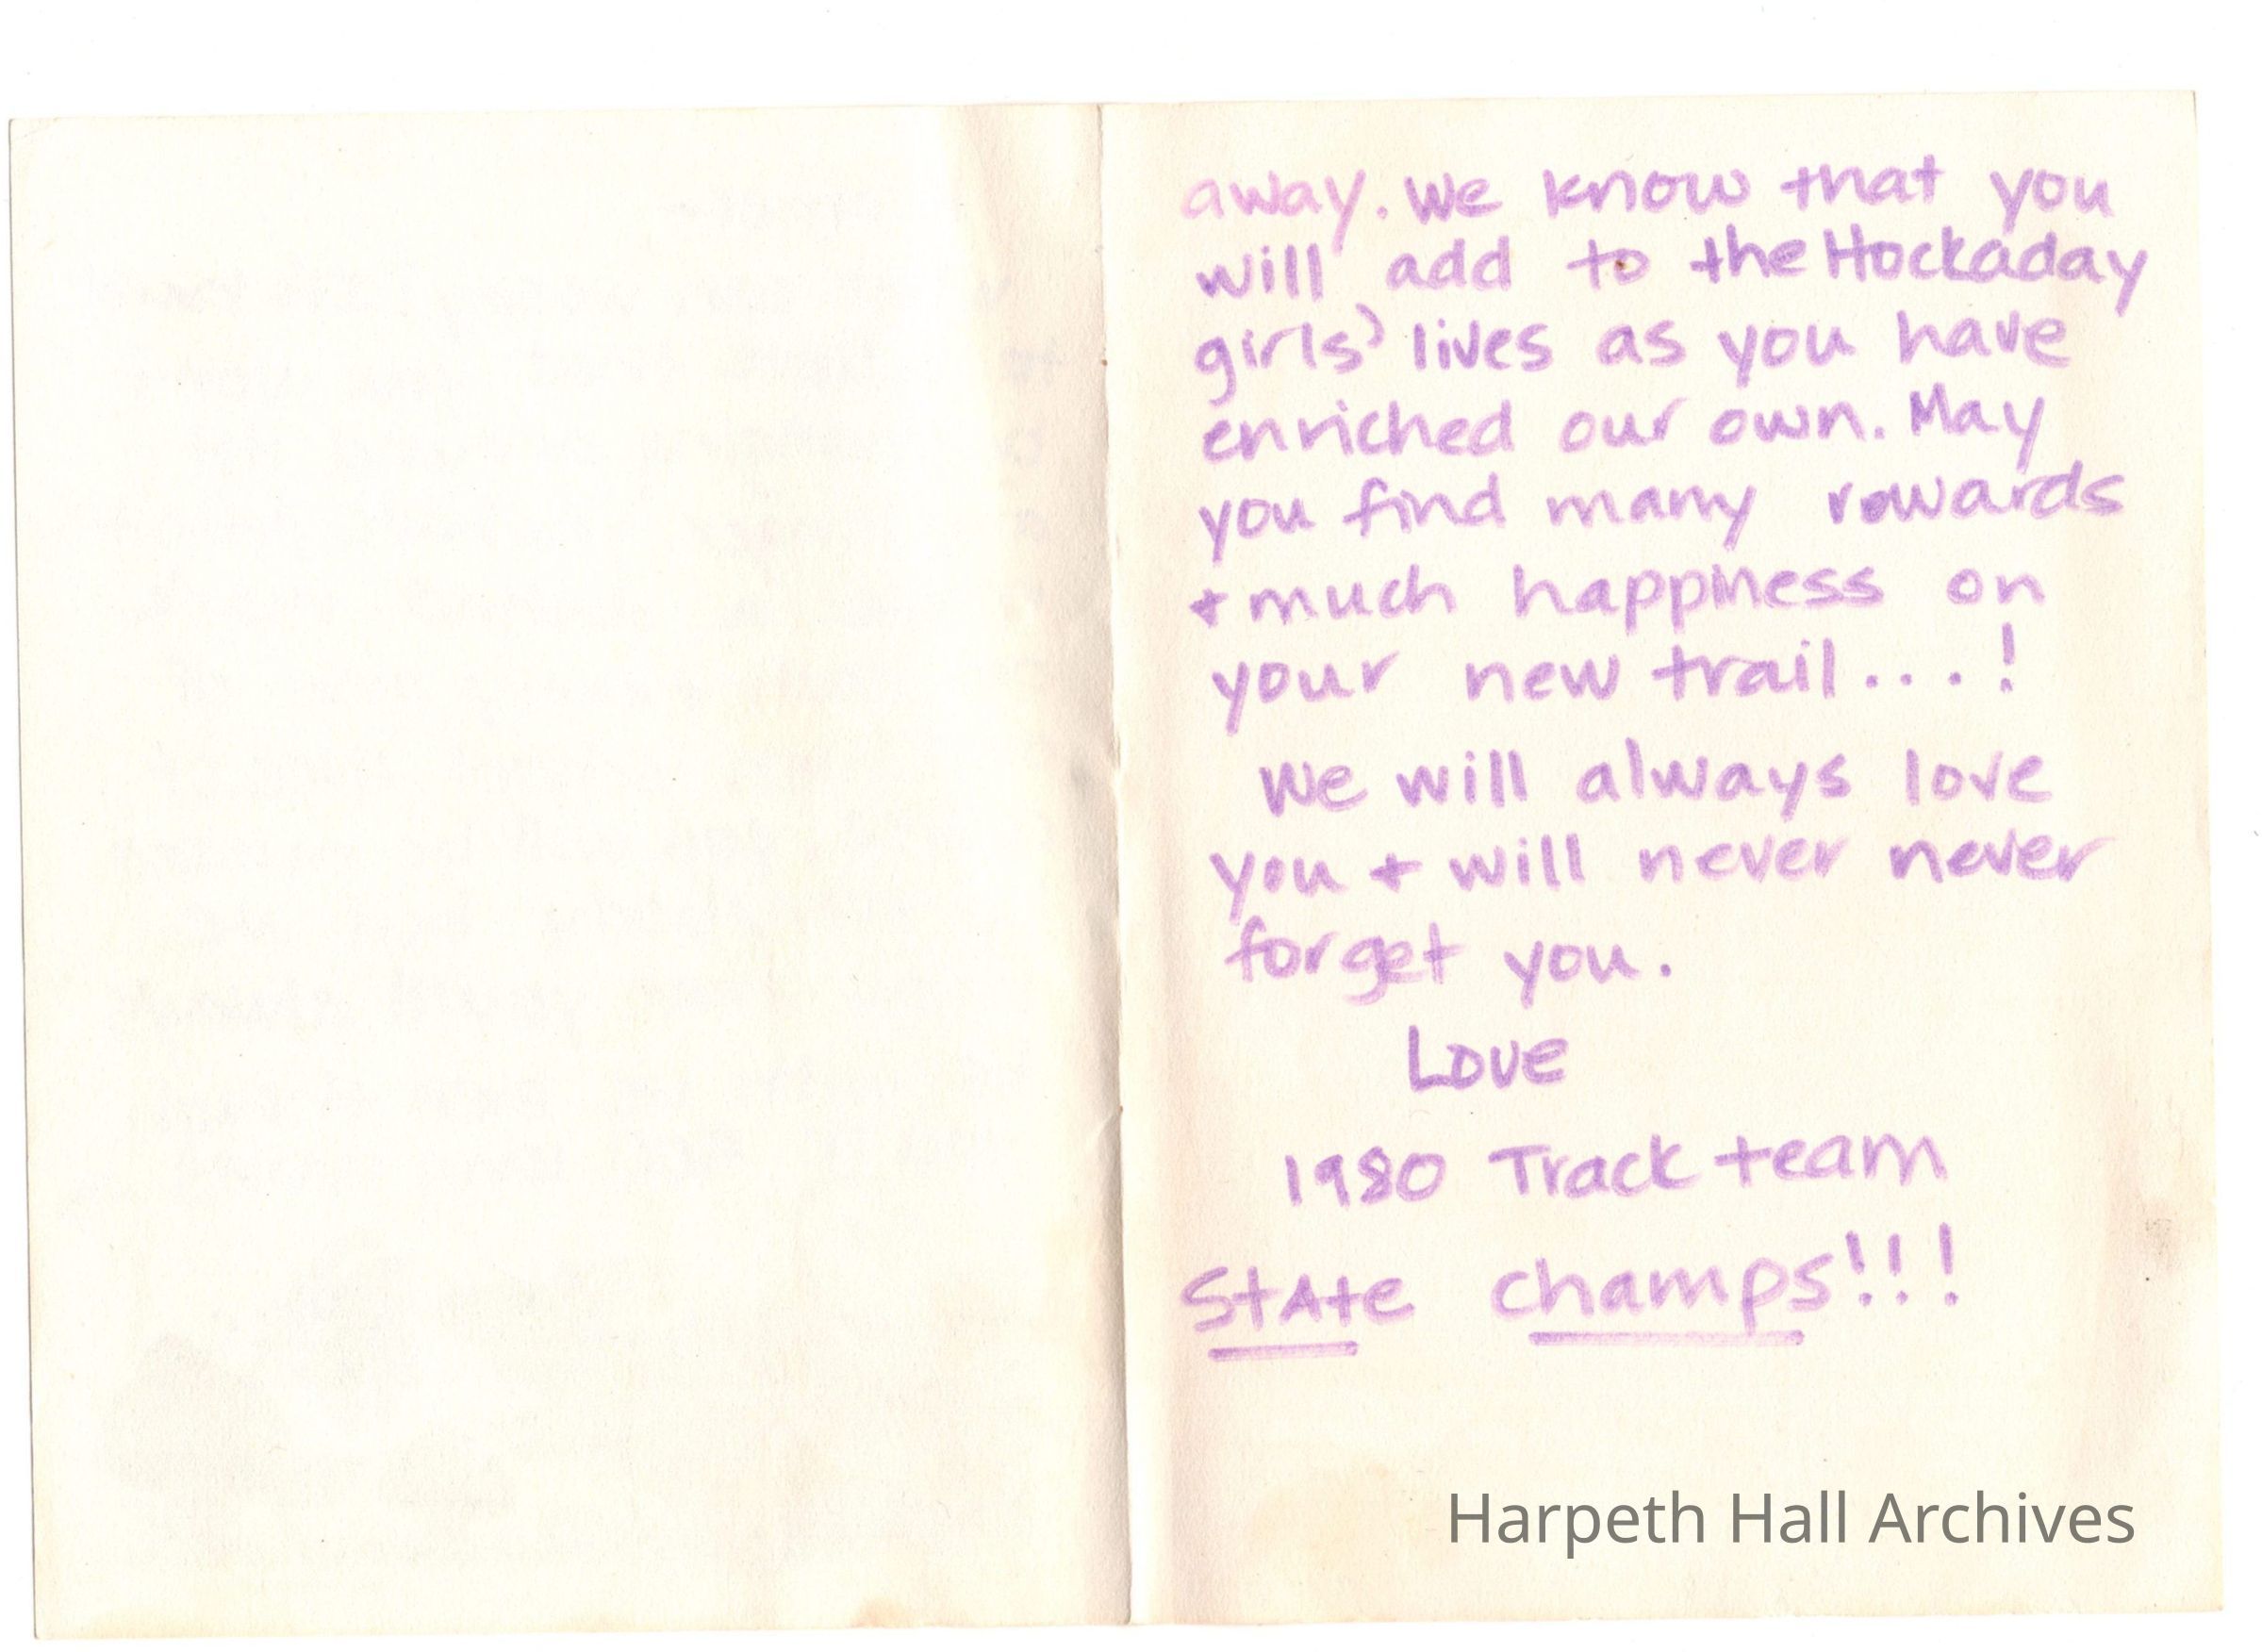 away. We know that you
will add to the Hockaday
girls' lives as you have
enriched our own. May
you find many rewards
+ much happiness on
your new trail...!
We will always love
you + will never never
forget you.
Love
1980 Track team
StAte champs!!!
Harpeth Hall Archives